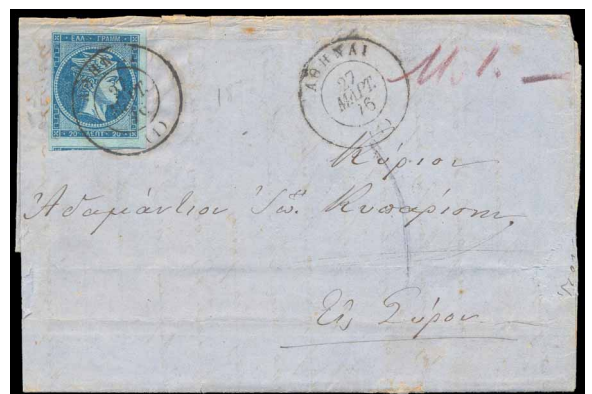 ΕΛΛ. ΓΡΑΜΜ.
20 ΛΕΠΤ. 20
ΑΘΗΝΑΙ
27
ΜΑΡΤ.
76
(1)
Κύριον
Ἀδαμάντιον Ἰω. Κυπαρίσσην
Εἰς Σύρον